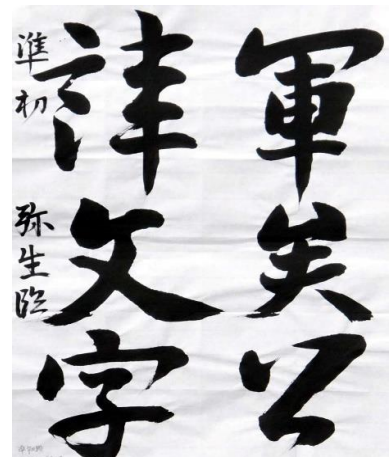 軍矣公
諱文字
準初 弥生臨